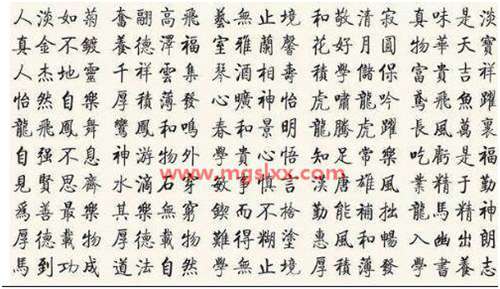 人淡如菊 奮翮高飛 藝無止境 和敬清寂 真味是淡
真金不鍍 養德澤福 室雅蘭馨 花好月圓 物華天寶
人杰地靈 千祥雲集 琴 相壽 學儲保 富貴吉祥
怡然自樂 厚積薄發 酒曠神怡 虎嘯龍吟 鳶飛魚躍
龍飛鳳舞 鸞鳳和鳴 春和景明 龍騰虎躍 長風萬裏
自强不息 神游物外 學貴心悟 知足常樂 吃虧是福
www.mgslxx.com
見賢思齊 水滴石穿 敏事慎言 漢唐雄風 業精于勤
爲善最樂 其樂無窮 鍥而不捨 勤能補拙 龍馬精神
厚德載物 厚德載物 難得糊塗 惠風和暢 入幽出朗
馬到功成 道法自然 學無止境 厚積薄發 學書養志